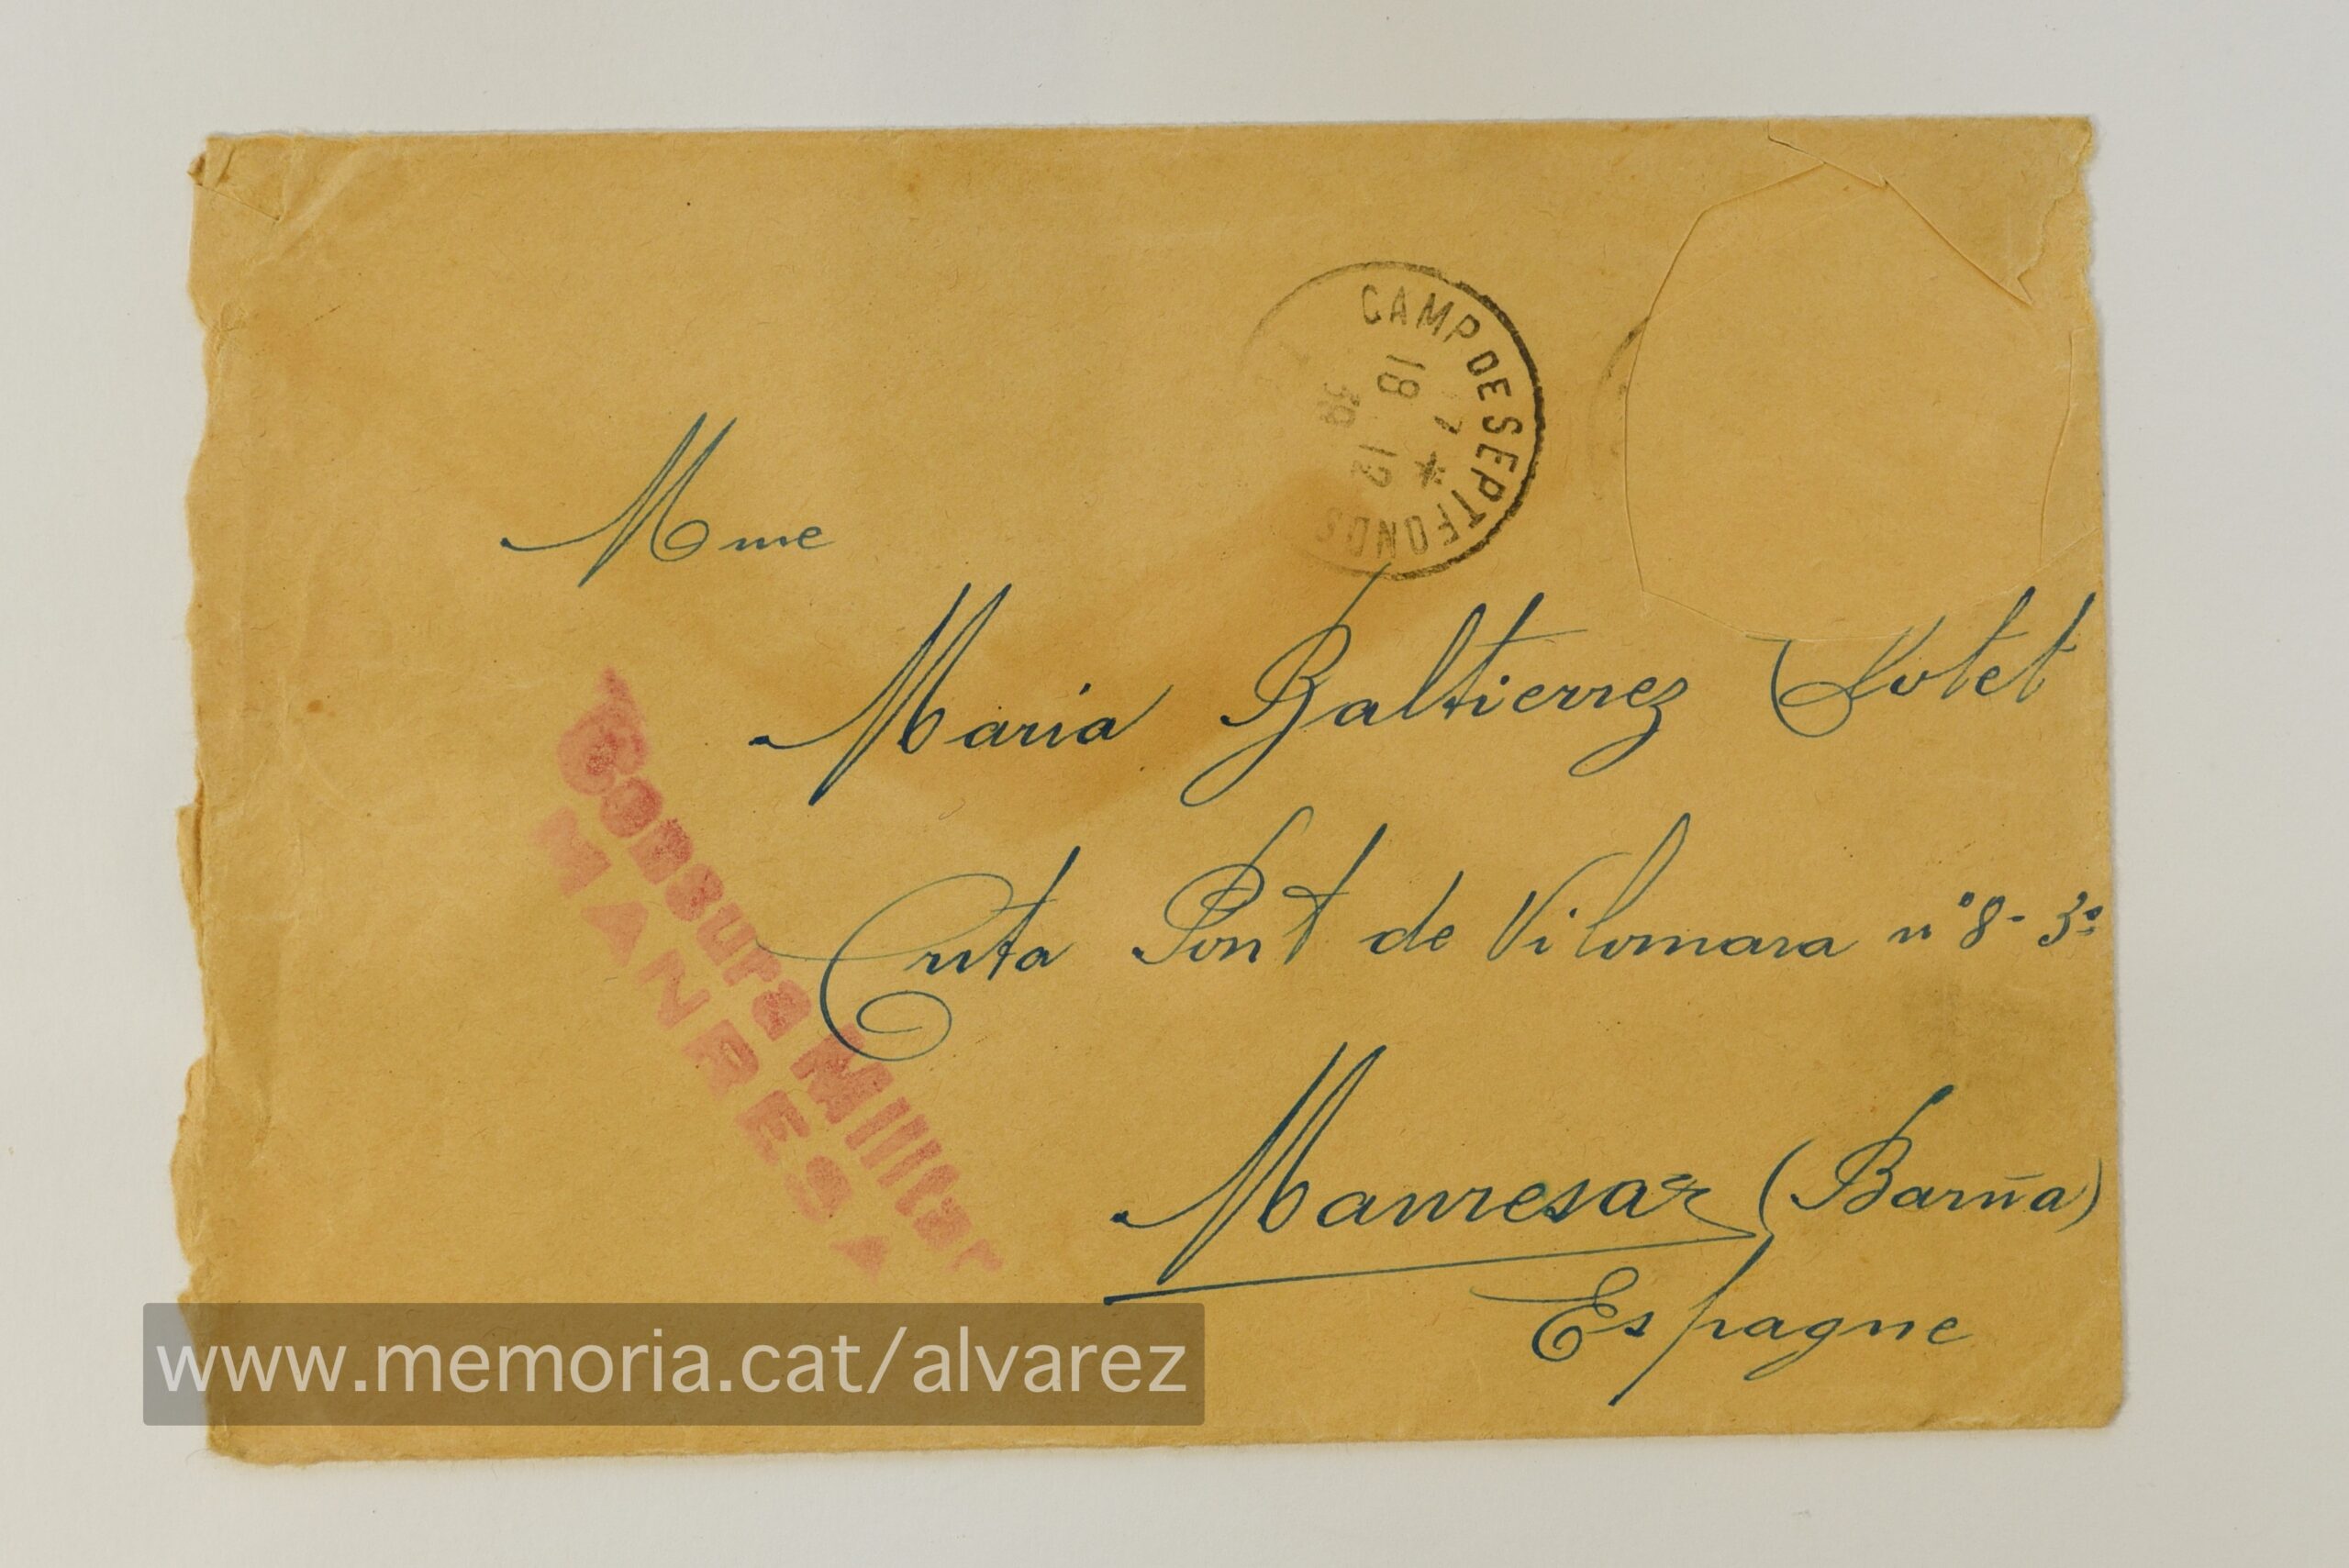 CAMP DE SEPTFONDS
7 *
18 12
39
Mme
Maria Baltierrez Sotet
Crta Pont de Vilomara nº 8- 3º
Manresa (Barña)
Espagne
Censura Militar
MANRESA
www.memoria.cat/alvarez